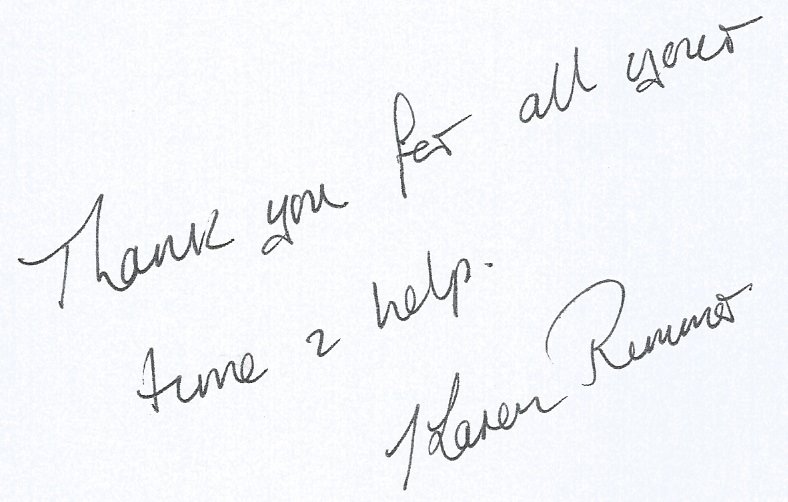 Thank you for all your
time & help.
Karen Rimmer